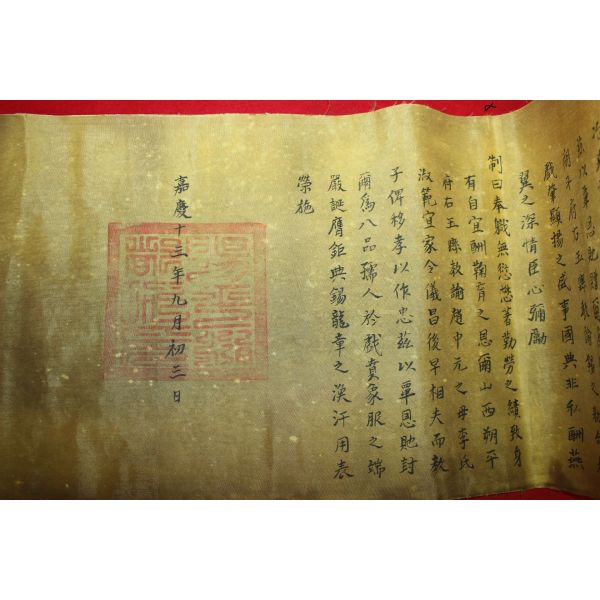 茲以覃恩貤
朔平府右玉縣教諭
戲肇顯揚之盛事國典非私酬燕
翼之深情臣心彌勵
制曰奉職無愆懋著勤勞之績致身
有自宜酬鞠育之恩爾山西朔平
府右玉縣教諭趙中元之母李氏
淑範宜家令儀昌後早相夫而教
子俾移孝以作忠茲以覃恩貤封
爾爲八品孺人於戲賁象服之端
嚴誕膺鉅典錫龍章之渙汗用表
榮施
嘉慶十三年九月初三日